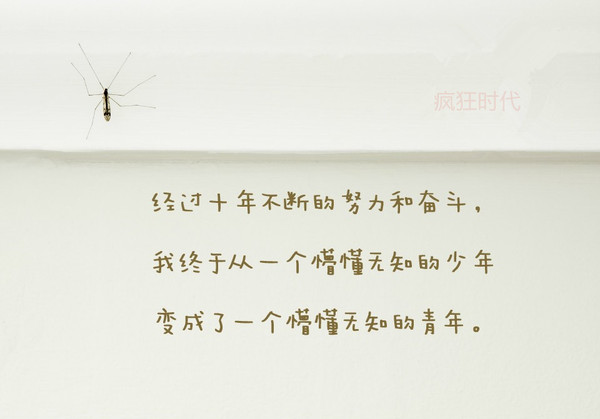 疯狂时代
经过十年不断的努力和奋斗，
我终于从一个懵懂无知的少年
变成了一个懵懂无知的青年。